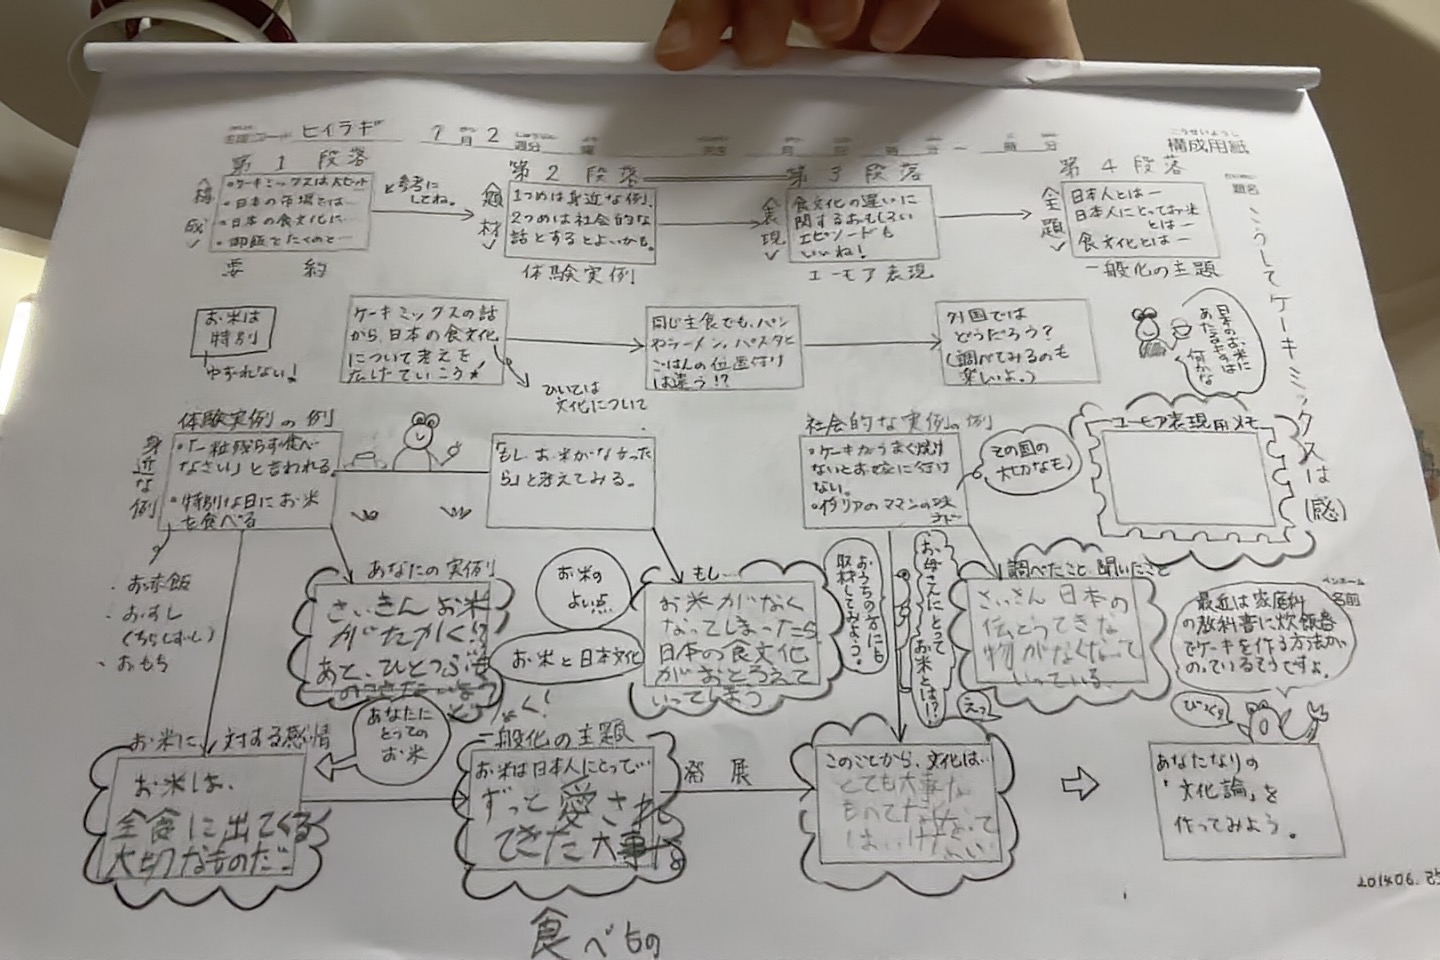 ヒイラギ 7月2週分
こうせいようし
構成用紙
第1段落
<構成>
・ケーキミックスは大ヒット
・日本の市場では…
・日本の食文化に…
・御飯をたくのと…
要約
と参考に
してね。
第2段落
<題材>
1つめは身近な例、
2つめは社会的な
話とするとよいかも。
体験実例
第3段落
<表現>
食文化の違いに
関するおもしろい
エピソードも
いいね!
ユーモア表現
第4段落
<主題>
日本人とは―
日本人にとってお米
とは―
食文化とは―
一般化の主題
題名
こうしてケーキミックスは(感)
お米は
特別
ゆずれない!
ケーキミックスの話
から、日本の食文化
について考えを
広げていこう
ひいては
文化について
同じ主食でも、パン
やラーメン、パスタと
ごはんの位置付け
は違う!?
外国では
どうだろう?
(調べてみるのも
楽しいよ。)
日本のお米に
あたるものは
何かな
体験実例の例
身近な例
・「一粒残らず食べ
なさい」と言われる。
・特別な日にお米
を食べる
・お赤飯
・おすし
(ちらしずし)
・おもち
「もし、お米がなかった
ら」と考えてみる。
社会的な実例の例
・ケーキがうまく焼け
ないとお嫁に行け
ない。
・イタリアのママンの味
その国の
大切なもの
ユーモア表現用メモ
あなたの実例
さいきんお米
がたかく!?
あと、ひとつぶも
お米の
よい点
お米と日本文化
もし…
お米がなく
なってしまったら
日本の食文化
がおとろえて
いってしまう
おうちの方にも
取材してみよう。
お母さんにとって
お米とは!?
調べたこと、聞いたこと
さいきん日本の
伝とうてきな
物がなくなって
いっている。
えっ
ペンネーム
名前
最近は家庭科
の教科書に炊飯器
でケーキを作る方法がの
っているそうですよ。
びっくり
お米に対する感情
お米は、
全食に出てくる
大切なものだ。
あなたに
とっての
お米
一般化の主題
お米は日本人にとって…
ずっと愛され
てきた大事な
食べもの
発展
このことから、文化は…
とても大事な
あなたなりの
「文化論」を
作ってみよう。